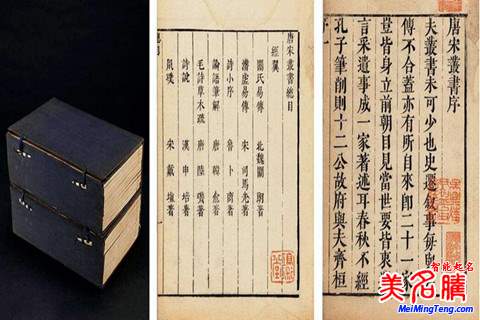 唐宋叢書總目
經翼
關氏易傳 北魏關朗著
潛虛易傳 宋司馬光著
詩小序 魯卜商著
論語筆解 唐韓愈著
毛詩草木疏 唐陸璣著
詩說 漢申培著
鼠璞 宋戴埴著
唐宋叢書序
夫叢書未可少也史遷叙事每與
傳不合蓋亦有所自來即二十一家
豈皆身立前朝目見當世要皆裒
言采遺事成一家著述耳春秋不經
孔子筆削則十二公故府與夫齊桓
智能起名
美名騰
MeiMingTeng.com